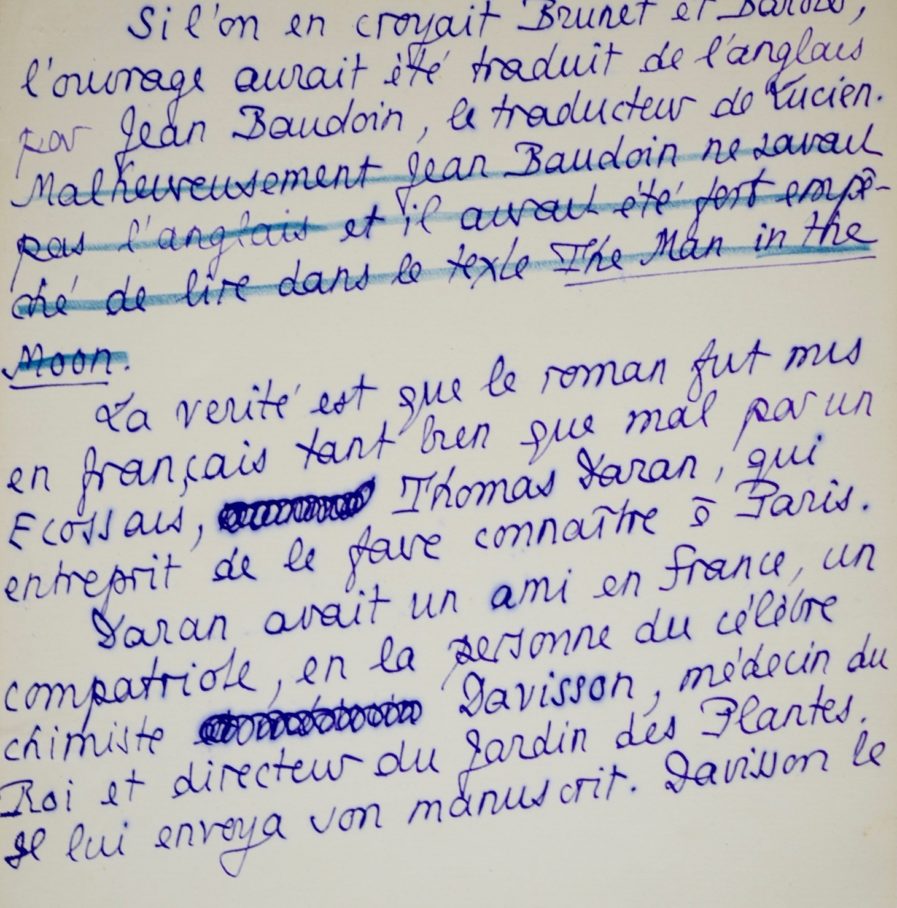 Si l'on en croyait Brunet et
l'ouvrage aurait été traduit de l'anglais
par Jean Baudoin, le traducteur de Lucien.
Malheureusement Jean Baudoin ne savait
pas l'anglais et il aurait été fort empê-
ché de lire dans le texte The Man in the
Moon.
La verité est que le roman fut mis
en français tant bien que mal par un
Ecossais, Thomas Daran, qui
entreprit de le faire connaître à Paris.
Daran avait un ami en France, un
compatriote, en la personne du célèbre
chimiste Davisson, médecin du
Roi et directeur du Jardin des Plantes.
Il lui envoya son manuscrit. Davisson le